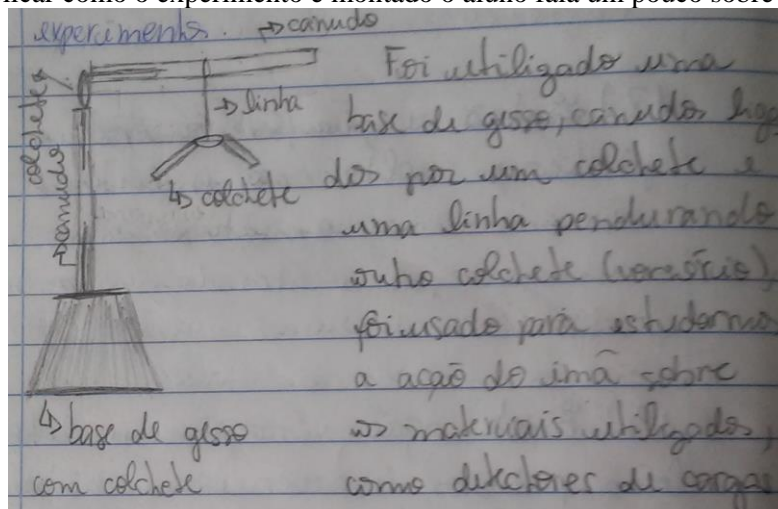 como o experimento é montado o aluno fala um pouco sobre
experimento. → canudo
colchetes
→ canudo
→ linha
↳ colchete
↳ base de gesso
com colchete
Foi utilizado uma
base de gesso, canudos liga
dos por um colchete e
uma linha pendurando
outro colchete (versório),
foi usado para estudarmos
a ação do imã sobre
os materiais utilizados,
como detectores de cargas